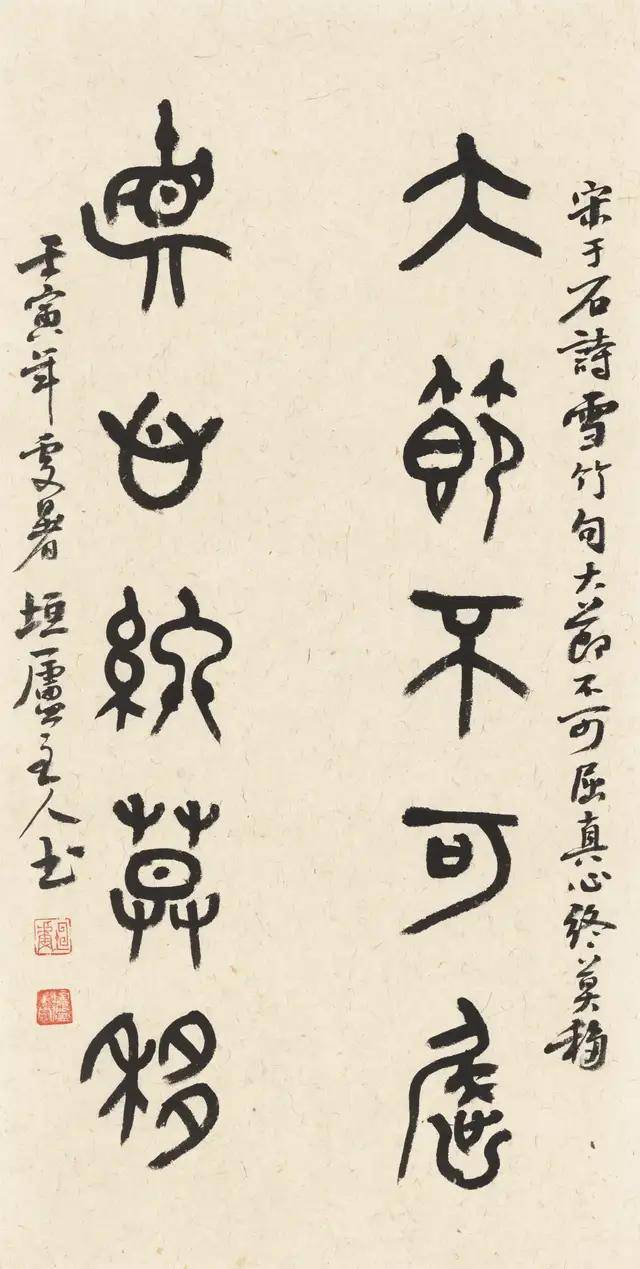 宋于石詩雪竹句大節不可屈真心終莫移
大節不可屈
真心終莫移
壬寅年處暑垣廬主人書